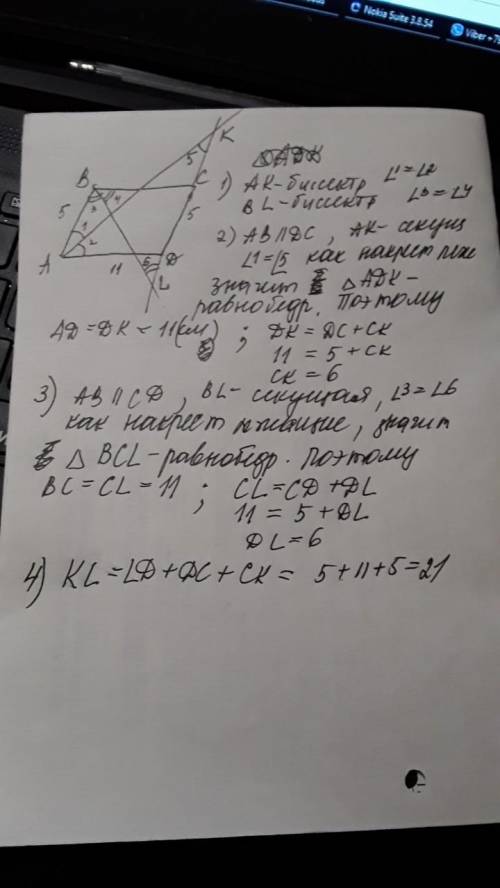 Nokia Suite 3.8.54
Viber +79
K
5
B
C
5
3
4
5
1
2
A
11
6
D
L
1) AK - биссектр ∠1=∠2
BL - биссектр ∠3=∠4
2) AB || DC, AK - секущ
∠1=∠5 как накрест леж
значит △ADK -
равнобедр. Поэтому
AD = DK = 11 (см) ; DK = DC + CK
11 = 5 + CK
CK = 6
3) AB || CD, BL - секущая, ∠3=∠6
как накрест лежащие, значит
△ BCL - равнобедр. Поэтому
BC = CL = 11 ; CL = CD + DL
11 = 5 + DL
DL = 6
4) KL = LD + DC + CK = 5 + 11 + 5 = 21